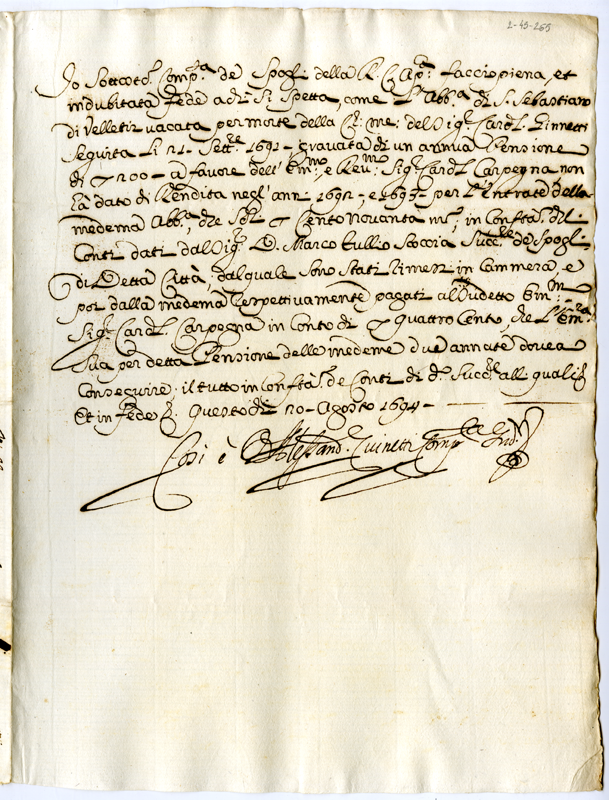 2-45-265
Io Sottotᵒ. Compᵗᵃ. de Spogli della R. C. Apᵃ: faccio piena, et
indubitata fede a chi Si Spetta, come l'Abbᵃ di S. Sebastiano
di Velletri vacata per morte della Ch: me: del Sigʳ. Cardˡ. Ginnetti
Seguita li 21. Settʳᵉ 1691 - gravata di un annua Pensione
di ▽ 200 - a favore dell' Emᵒ, e Revᵐᵒ Sigʳ. Cardˡ Carpegna non
ha dato di Rendita negl'anni 1692, e 1693 - per l'Entrate della
medema Abbᵃ, che Soli ▽ Cento Novanta mᵗᵃ, in Conftà. delli
Conti dati dal Sigʳ. D. Marco Tullio Scoccia Succʳᵉ de Spogli
di Detta Città, dal quale Sono Stati rimessi in Cammera, e
poi dalla medema respettivamente pagati al Sudetto Emᵒ:
Sigʳ. Cardˡ. Carpegna in Conto di ▽ quattro Cento, che l'Emᶻᵃ
Sua per detta Pensione delle medeme due annate dovea
Conseguire; il tutto in Conftà. de Conti di dᵒ. Succʳᵉ alli quali &
Et in fede &. Questo dì 20 - Agosto 1694 -
Così è Alessandᵒ. Compᵗᵃ